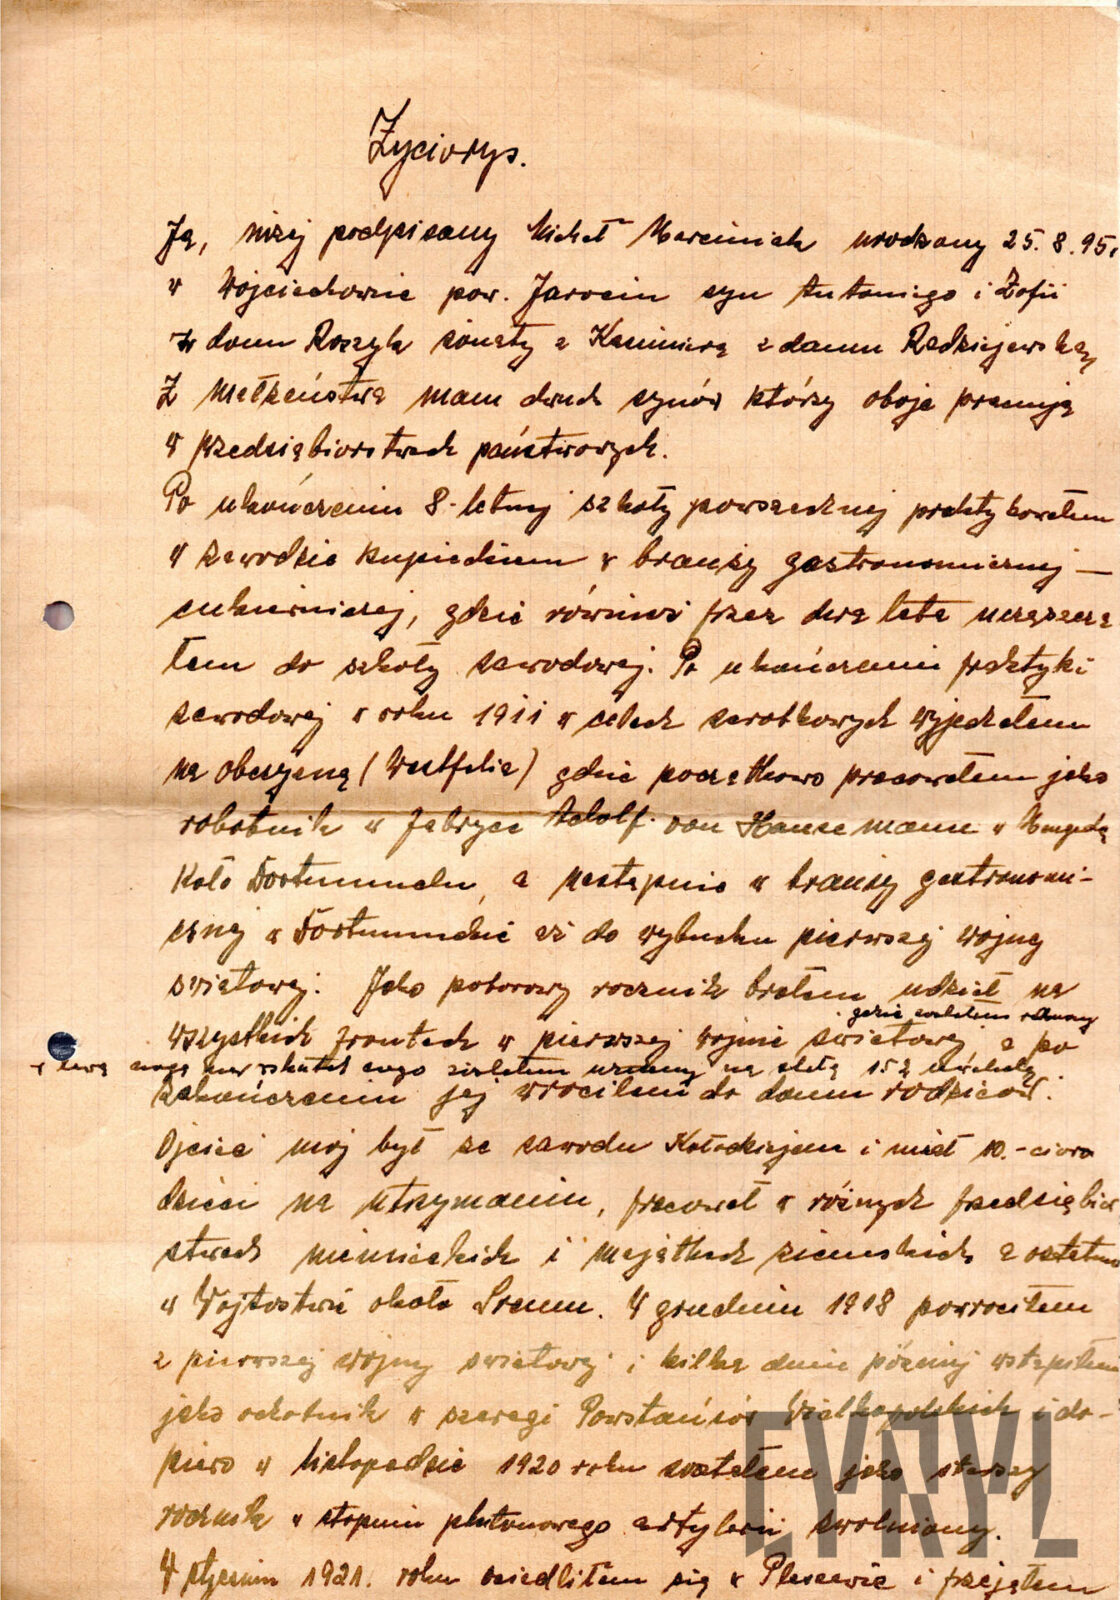 Życiorys.
Ja, niżej podpisany Michał Marciniak urodzony 25.8.95r
w Wojciechowie pow. Jarocin syn Antoniego i Zofii
z domu Roszyk żonaty z Kazimierą z domu Radziejewską,
Z małżeństwa mam dwuch synów którzy oboje pracują
w przedsiębiorstwach państwowych.
Po ukończeniu 8-letniej szkoły powszechnej praktykowałem
w zawodzie kupieckiem w branży gastronomicznej —
cukierniczej, gdzie również przez dwa lata uczęszcza
łem do szkoły zawodowej. Po ukończeniu praktyki
zawodowej w roku 1911 w celach zarobkowych wyjechałem
na obczyznę (Westfalia) gdzie początkowo pracowałem jako
robotnik w fabryce Adolf von Hansemann w
koło Dortmundu, a następnie w branży gastronomi-
cznej w Dortmundzie aż do wybuchu pierwszej wojny
światowej. Jako poborowy rocznik brałem udział na
gdzie zostałem ranny
wszystkich frontach w pierwszej wojnie światowej a po
w lewą nogę na skutek czego zostałem uznany na stałą 15% inwalidą
zakończeniu jej wrociłem do domu rodziców.
Ojciec moj był ze zawodu Kołodziejem i miał 10.-cioro
dzieci na utrzymaniu, pracował w różnych przedsiębior
stwach niemieckich i majątkach ziemskich a ostatnio
w Wojtostwie około Śremu. W grudniu 1918 powrociłem
z pierwszej wojny swiatowej i kilka dnie później wstąpiłem
jako ochotnik w szeregi Powstańców Wielkopolskich i do-
piero w listopadzie 1920 roku zostałem jako starszy
rocznik w stopniu plutonowego artylerii zwolniony.
W styczniu 1921. roku osiedliłem się w Pleszewie i przejąłem
CYRYL